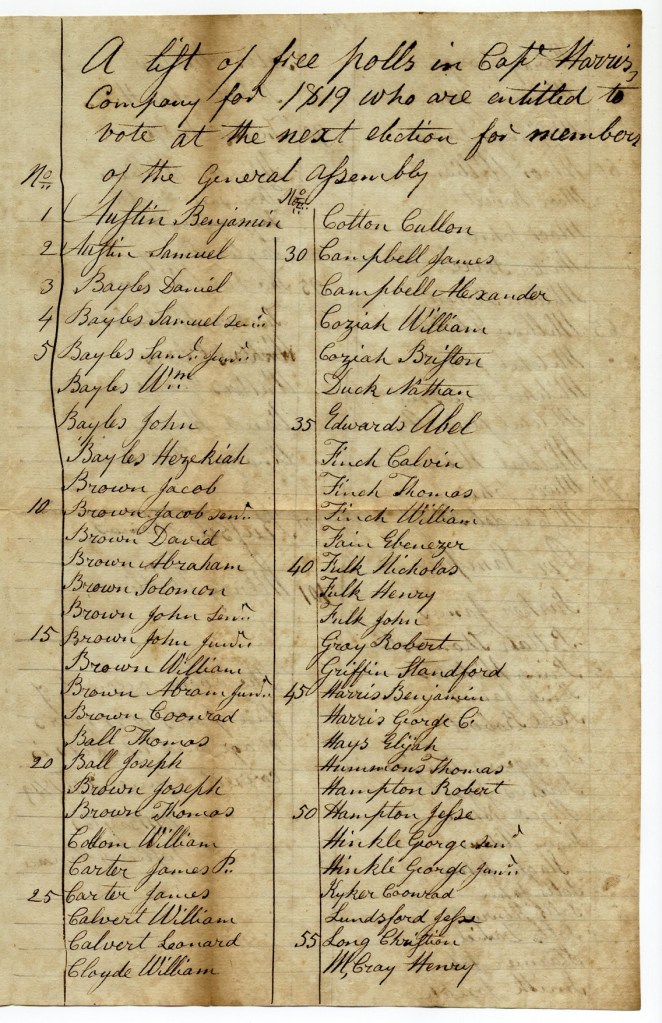 A list of free polls in Capt. Harris,
Company for 1819 who are entitled to
vote at the next election for members
of the General Assembly
No.
1 Austin Benjamin
2 Austin Samuel
3 Bayles Daniel
4 Bayles Samuel Senr.
5 Bayles Saml. Junr.
Bayles Wm.
Bayles John
Bayles Hezekiah
Brown Jacob
10 Brown Jacob Senr.
Brown David
Brown Abraham
Brown Solomon
Brown John Senr.
15 Brown John Junr.
Brown William
Brown Abram Junr.
Brown Coonrad
Ball Thomas
20 Ball Joseph
Brown Joseph
Brown Thomas
Collom William
Carter James P.
25 Carter James
Calvert William
Calvert Leonard
Cloyde William
No.
Cotton Cullon
30 Campbell James
Campbell Alexander
Coziah William
Coziah Brifton
Duck Nathan
35 Edwards Abel
Finch Calvin
Finch Thomas
Finch William
Fain Ebenezer
40 Fulk Nicholas
Fulk Henry
Fulk John
Gray Robert
Griffin Standford
45 Harris Benjamin
Harris George C.
Hays Elijah
Hummons Thomas
Hampton Robert
50 Hampton Jesse
Hinkle Gorge Senr.
Hinkle George Junr.
Kyker Coonrad
Lundsford Jesse
55 Long Christion
McCray Henry